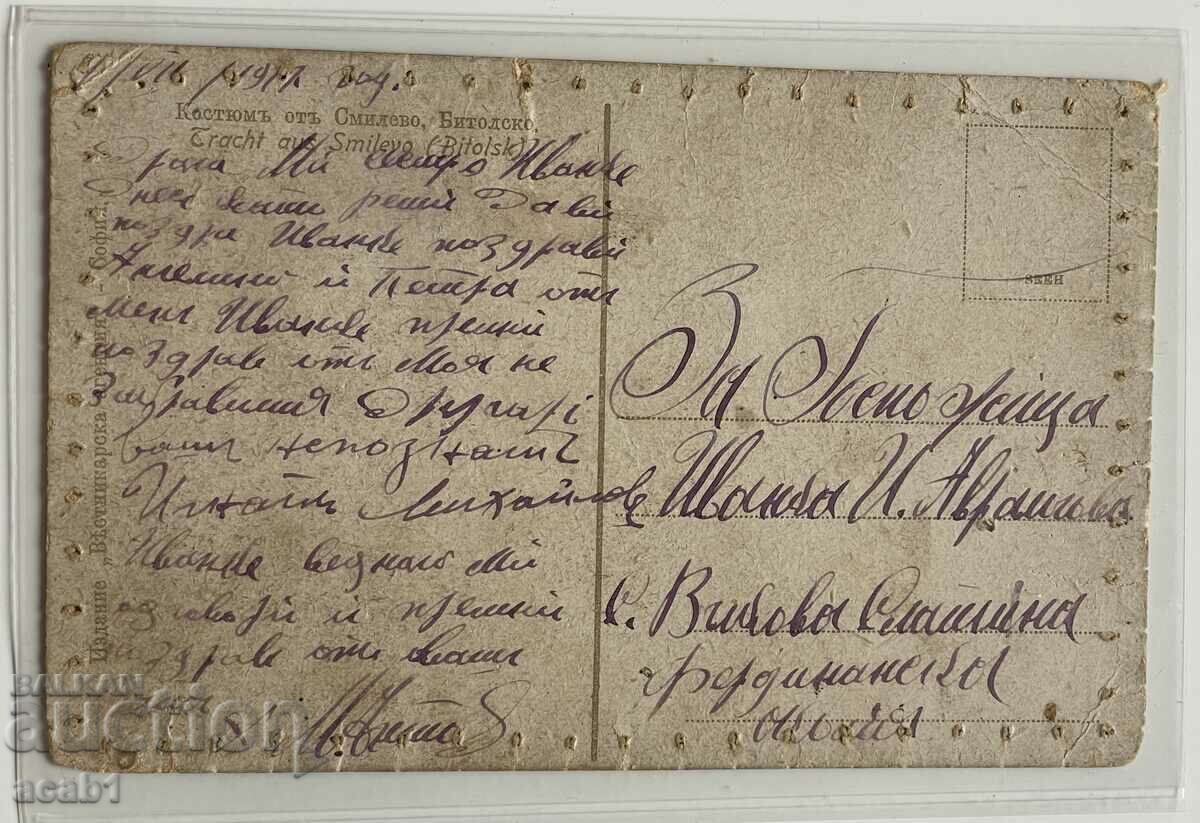 /VIII /1917 год.
Костюмъ отъ Смилево, Битолско.
Tracht aus Smilevo (Bitolsk)
Драга Ми сестро Иванке
поздра Иванке поздрави
и Петра отъ
Мене Иванке приеми
поздраве отъ Моя не
Забравимия Другарі
вашъ непознатъ
Игнатъ Михайловъ
Иванке веднага Ми
и приеми
поздраве отъ вашъ
Издание „Вѣстникарска Агенция" - София.
SEEH
За Госпожица
Иванка И. Аврамова
с. Вълкова Слатина
Фердинанска
околия
BALKAN
auction
acab1